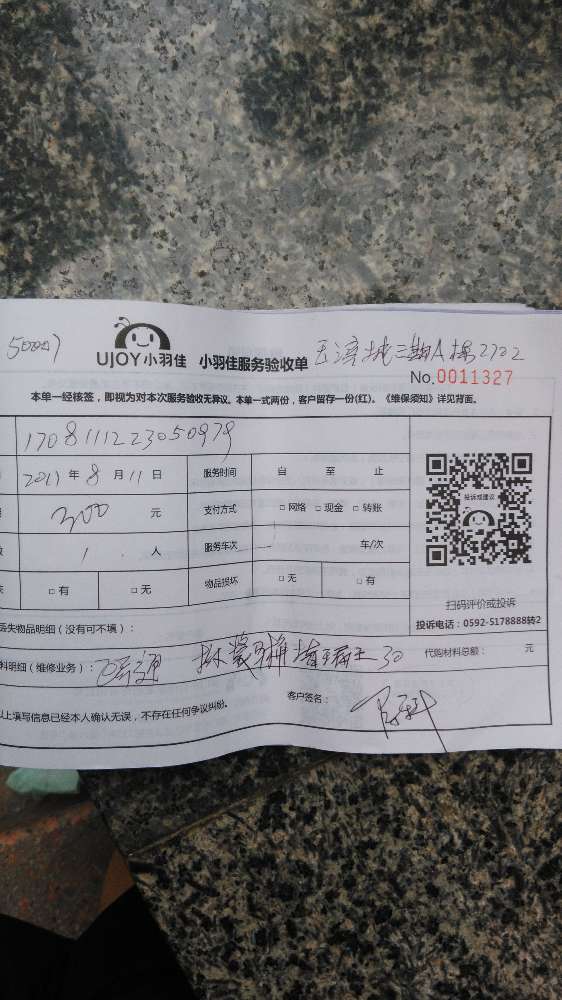 UJOY小羽佳 小羽佳服务验收单
No.0011327
本单一经核签，即视为对本次服务验收无异议。本单一式两份，客户留存一份(红)。《维保须知》详见背面。
170811122305097 9
2017年8月11日 服务时间 自 至 止
300 元 支付方式 □网络 □现金 □转账
投诉或建议
1 人 服务车次 车/次
□有 □无 物品损坏 □无 □有
扫码评价或投诉
投诉电话：0592-5178888转2
丢失物品明细（没有可不填）：
料明细（维修业务）： 30 代购材料总额： 元
以上填写信息已经本人确认无误，不存在任何争议纠纷。 客户签名：